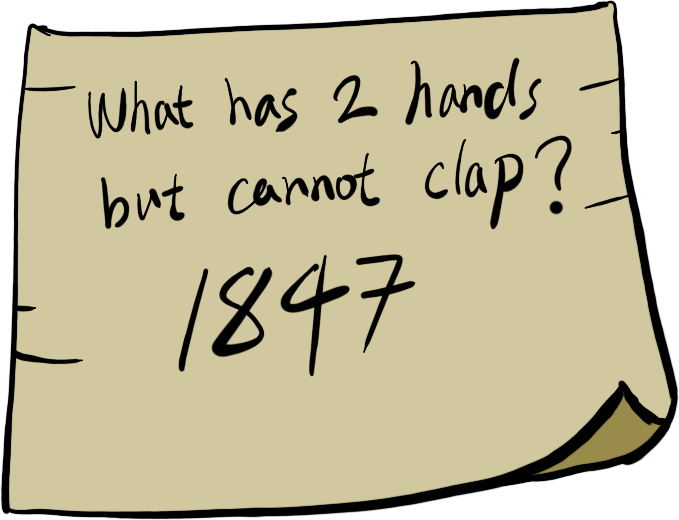 What has 2 hands
but cannot clap?
1847